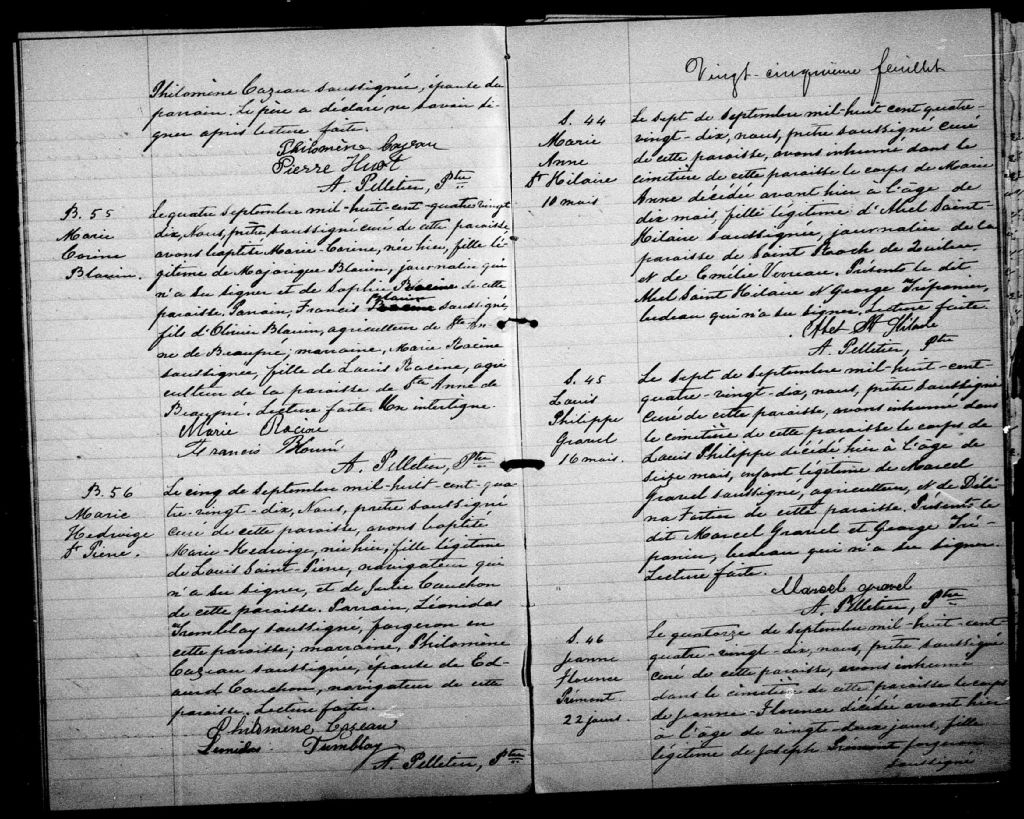 Philomène Cazeau soussignée, épouse du
parrain. Le père a déclaré ne savoir si-
gner après lecture faite.
Philomène Cazeau
Pierre Huot
A. Pelletier, Ptre
B. 55
Marie
Corine
Blouin.
Le quatre septembre mil-huit-cent-quatre vingt
dix, Nous, prêtre soussigné curé de cette paroisse
avons baptisé Marie-Corine, née hier, fille lé-
gitime de Majorique Blouin, journalier qui
n'a su signer et de Sophie Racine de cette
paroisse. Parrain, Francis Blouin soussigné,
fils d'Olivier Blouin, agriculteur de Ste An-
ne de Beaupré; marraine, Marie Racine
soussignée, fille de Louis Racine, agri-
culteur de la paroisse de Ste Anne de
Beaupré. Lecture faite. Un interligne.
Marie Racine
Francis Blouin
A. Pelletier, Ptre
B. 56
Marie
Hedwige
St Pierre.
Le cinq de septembre mil-huit-cent-qua-
tre-vingt-dix, Nous, prêtre soussigné
curé de cette paroisse, avons baptisé
Marie-Hedwige, née hier, fille légitime
de Louis Saint-Pierre, navigateur qui
n'a su signer, et de Julie Cauchon
de cette paroisse. Parrain, Léonidas
Tremblay soussigné, forgeron en
cette paroisse; marraine, Philomène
Cazeau soussignée, épouse de Ed-
ouard Cauchon, navigateur de cette
paroisse. Lecture faite.
Philomène Cazeau
Tremblay
A. Pelletier, Ptre
Vingt-cinquième feuillet
S. 44
Marie
Anne
St Hilaire
10 mois
Le sept de septembre mil-huit cent quatre-
vingt-dix, nous, prêtre soussigné curé
de cette paroisse, avons inhumé dans le
cimetière de cette paroisse le corps de Marie
Anne décédée avant hier à l'âge de
dix mois, fille légitime d'Abel Saint-
Hilaire soussigné, journalier de la
paroisse de Saint Roch de Québec
et de Emélie Verreau. Présents le dit
Abel Saint Hilaire et George Trépanier,
bedeau qui n'a su signer. Lecture faite
Abel St Hilaire
A. Pelletier, Ptre
S. 45
Louis
Philippe
Gravel
16 mois.
Le sept de septembre mil-huit-cent-
quatre-vingt-dix, nous, prêtre soussigné
curé de cette paroisse, avons inhumé dans
le cimetière de cette paroisse le corps de
Louis Philippe décédé hier à l'âge de
seize mois, enfant légitime de Marcel
Gravel soussigné, agriculteur, et de Déli-
na Fortier de cette paroisse. Présents le
dit Marcel Gravel et George Tré-
panier, bedeau qui n'a su signer.
Lecture faite.
Marcel gravel
A. Pelletier, Ptre
S. 46
Jeanne
Florence
Prémont
22 jours.
Le quatorze de septembre mil-huit-cent-
quatre-vingt-dix, nous, prêtre soussigné
curé de cette paroisse, avons inhumé
dans le cimetière de cette paroisse le corps
de Jeanne-Florence décédée avant hier
à l'âge de vingt-deux jours, fille
légitime de Joseph Prémont forgeron
soussigné